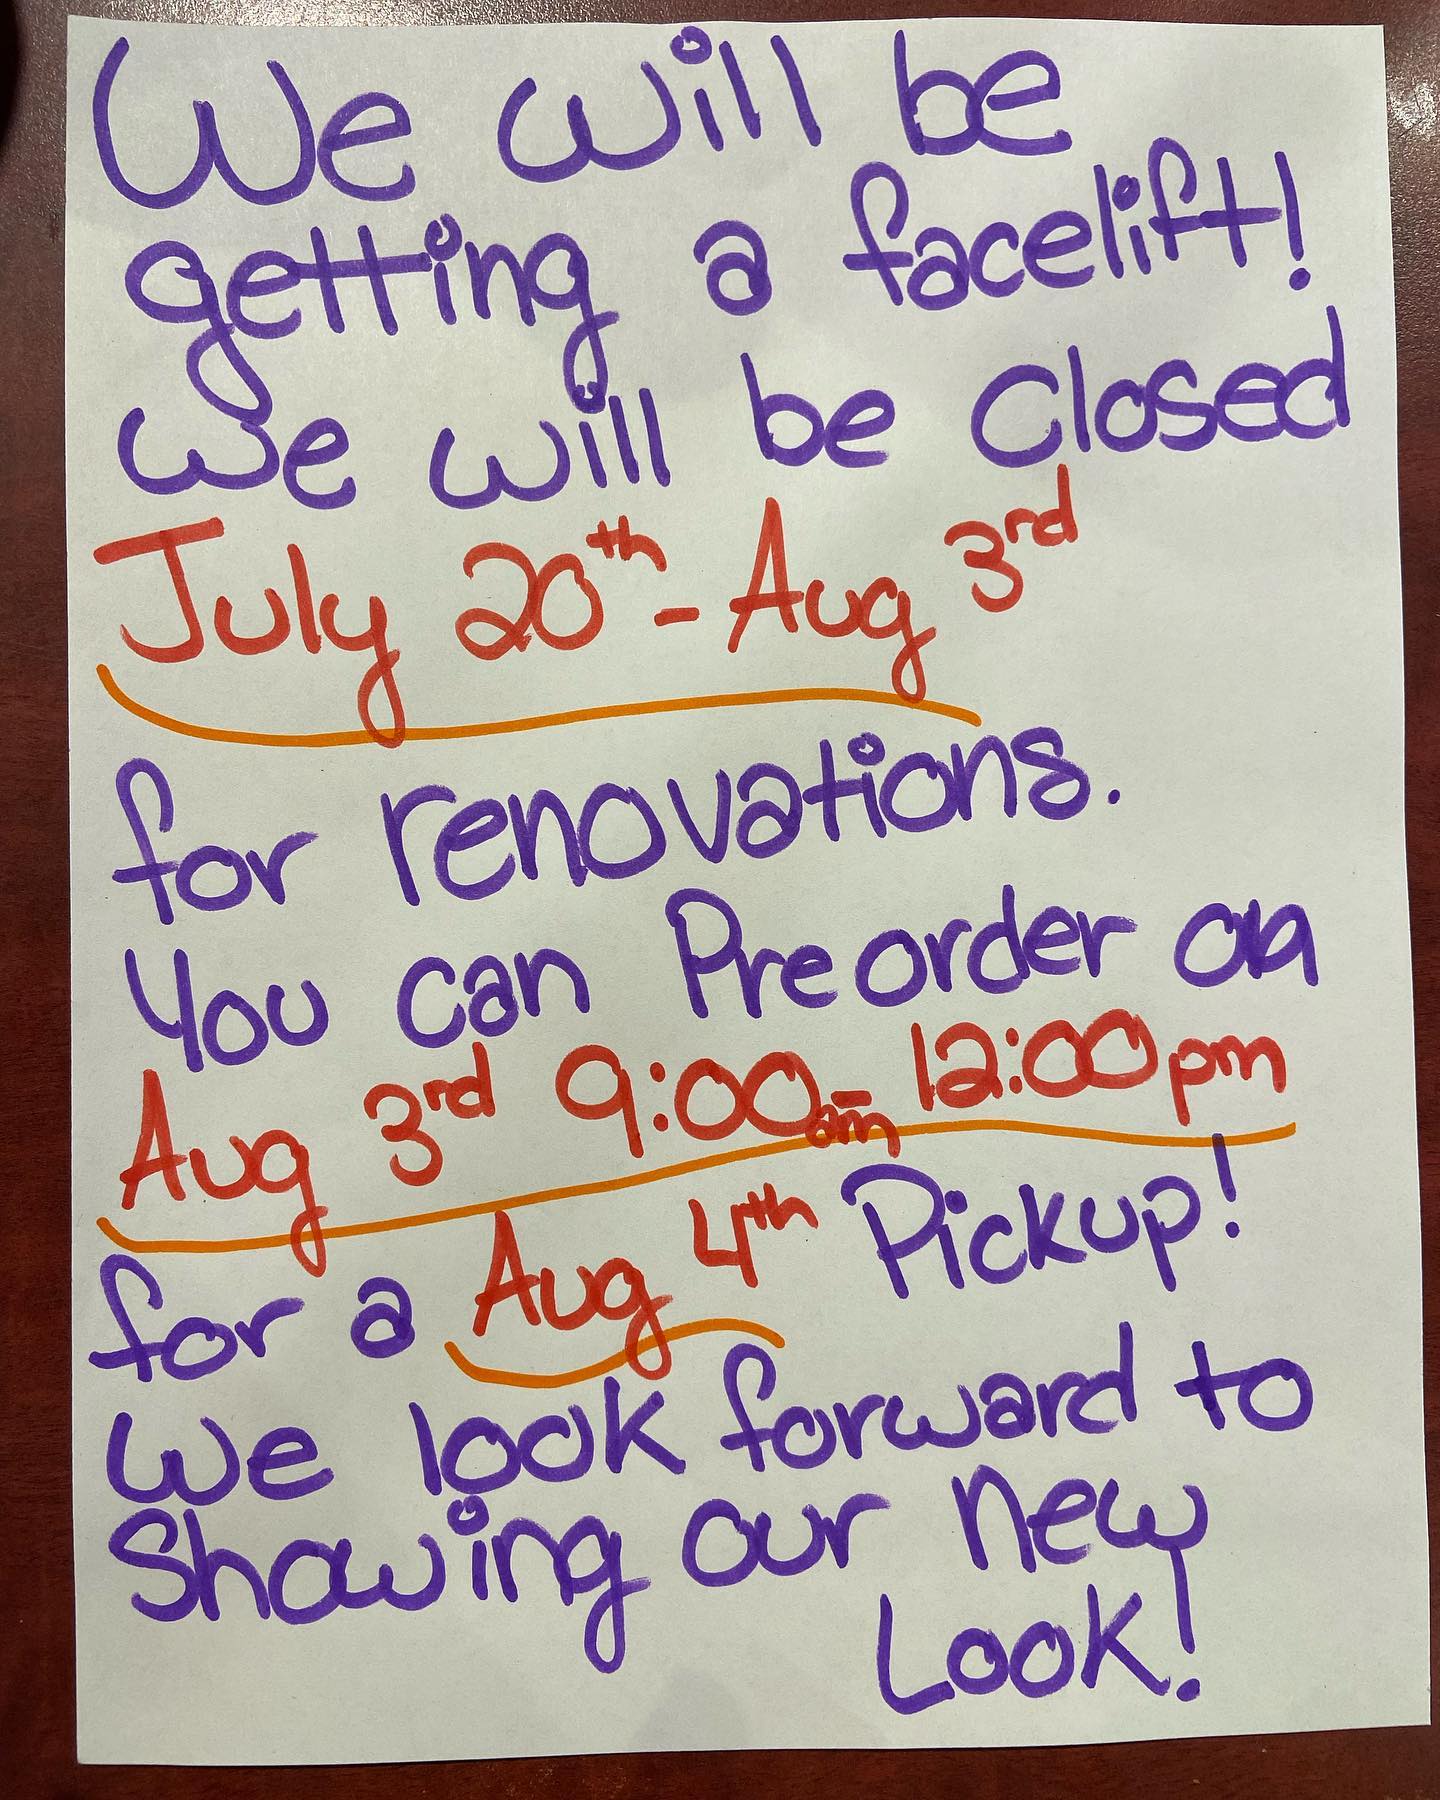 We will be
getting a facelift!
We will be closed
July 20th - Aug 3rd
for renovations.
You can Preorder on
Aug 3rd 9:00am - 12:00pm
for a Aug 4th Pickup!
We look forward to
Showing our new
Look!